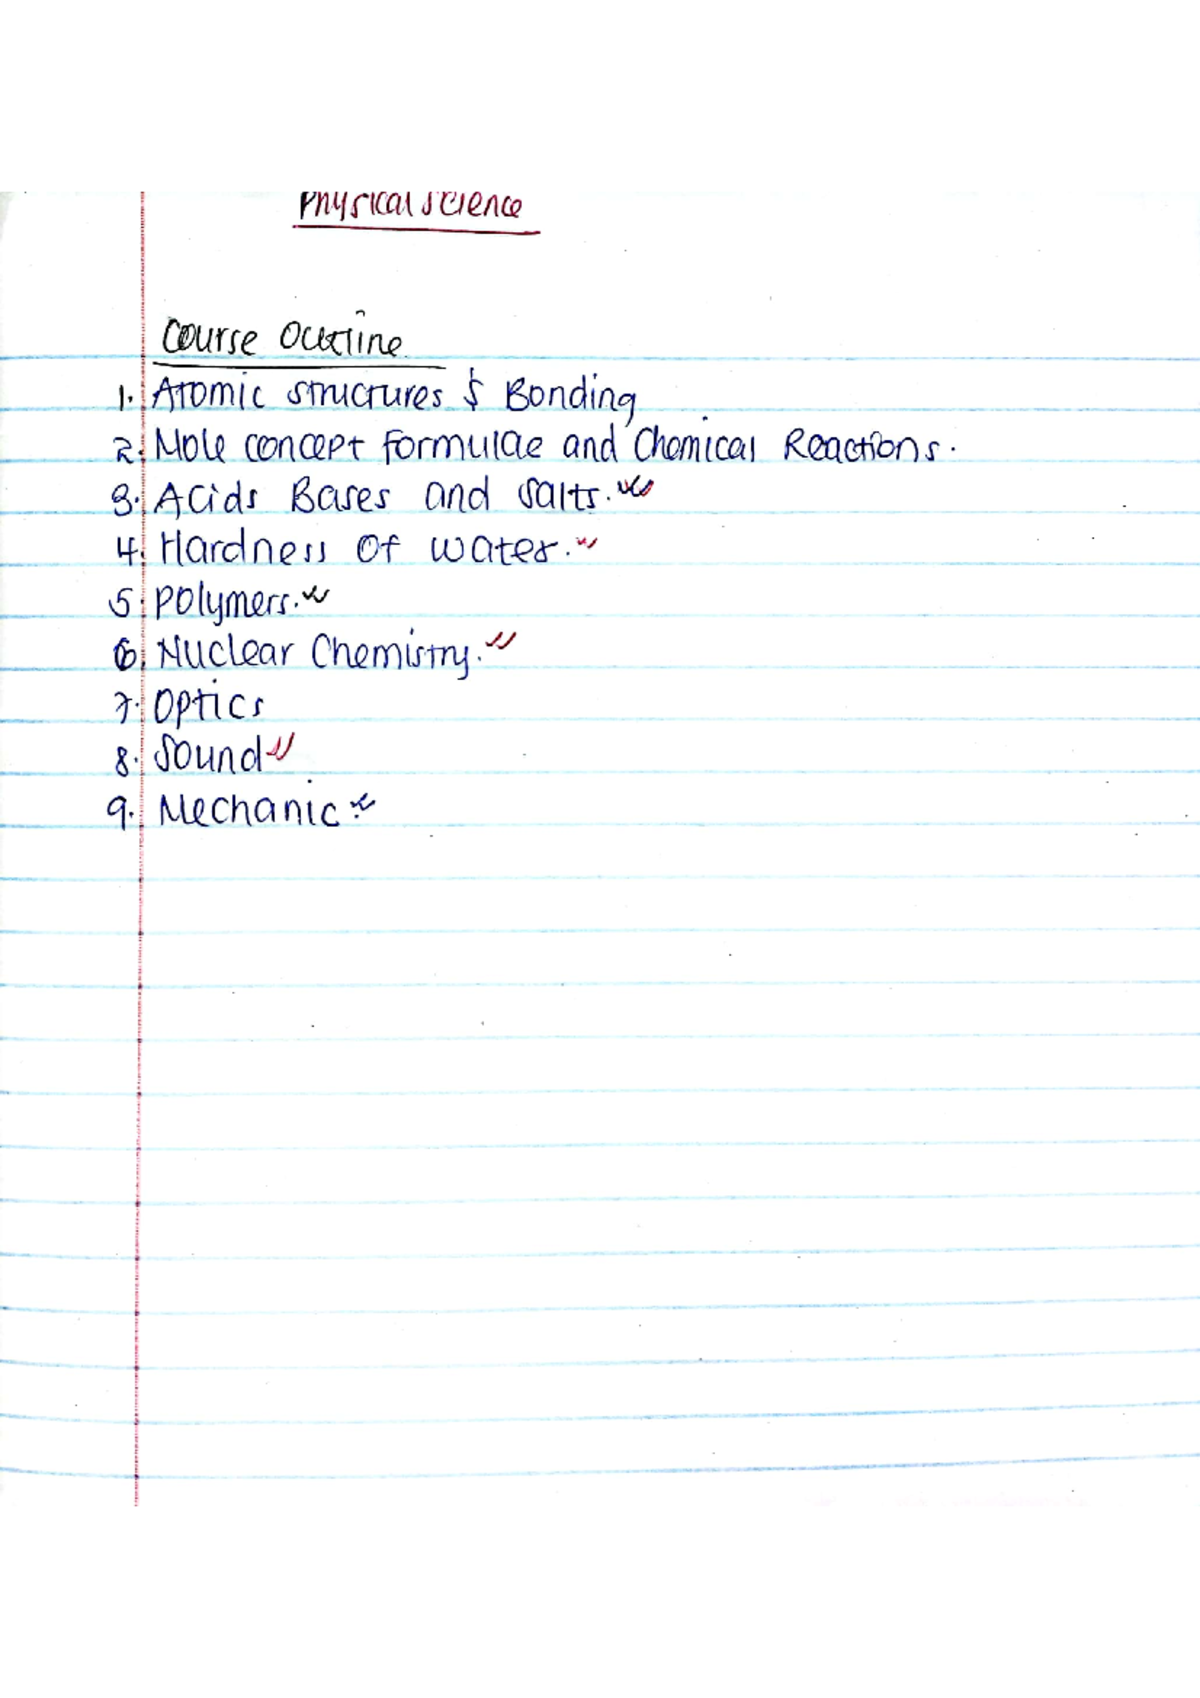 Physical Science
Course Outline
1. Atomic structures & Bonding
2. Mole concept formulae and Chemical Reactions.
3. Acids Bases and Salts.
4. Hardness of water.
5. Polymers.
6. Nuclear Chemistry.
7. Optics
8. Sound
9. Mechanic